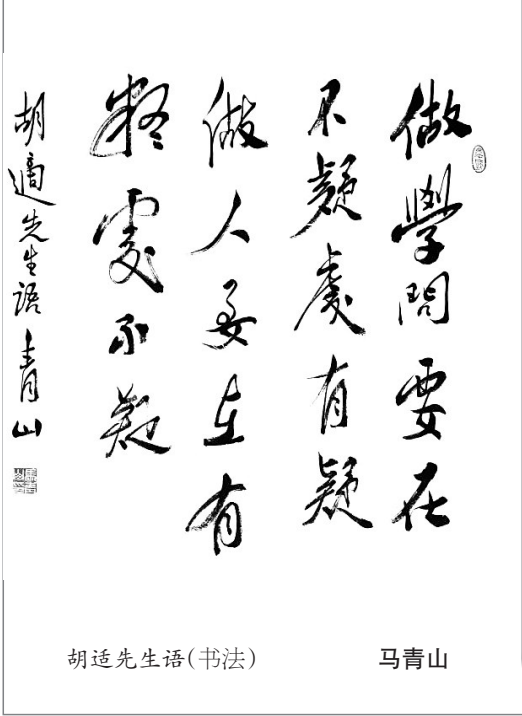 做學問要在
不疑處有疑
做人要在有
疑處不疑
胡適先生语青山
胡适先生语(书法)
马青山